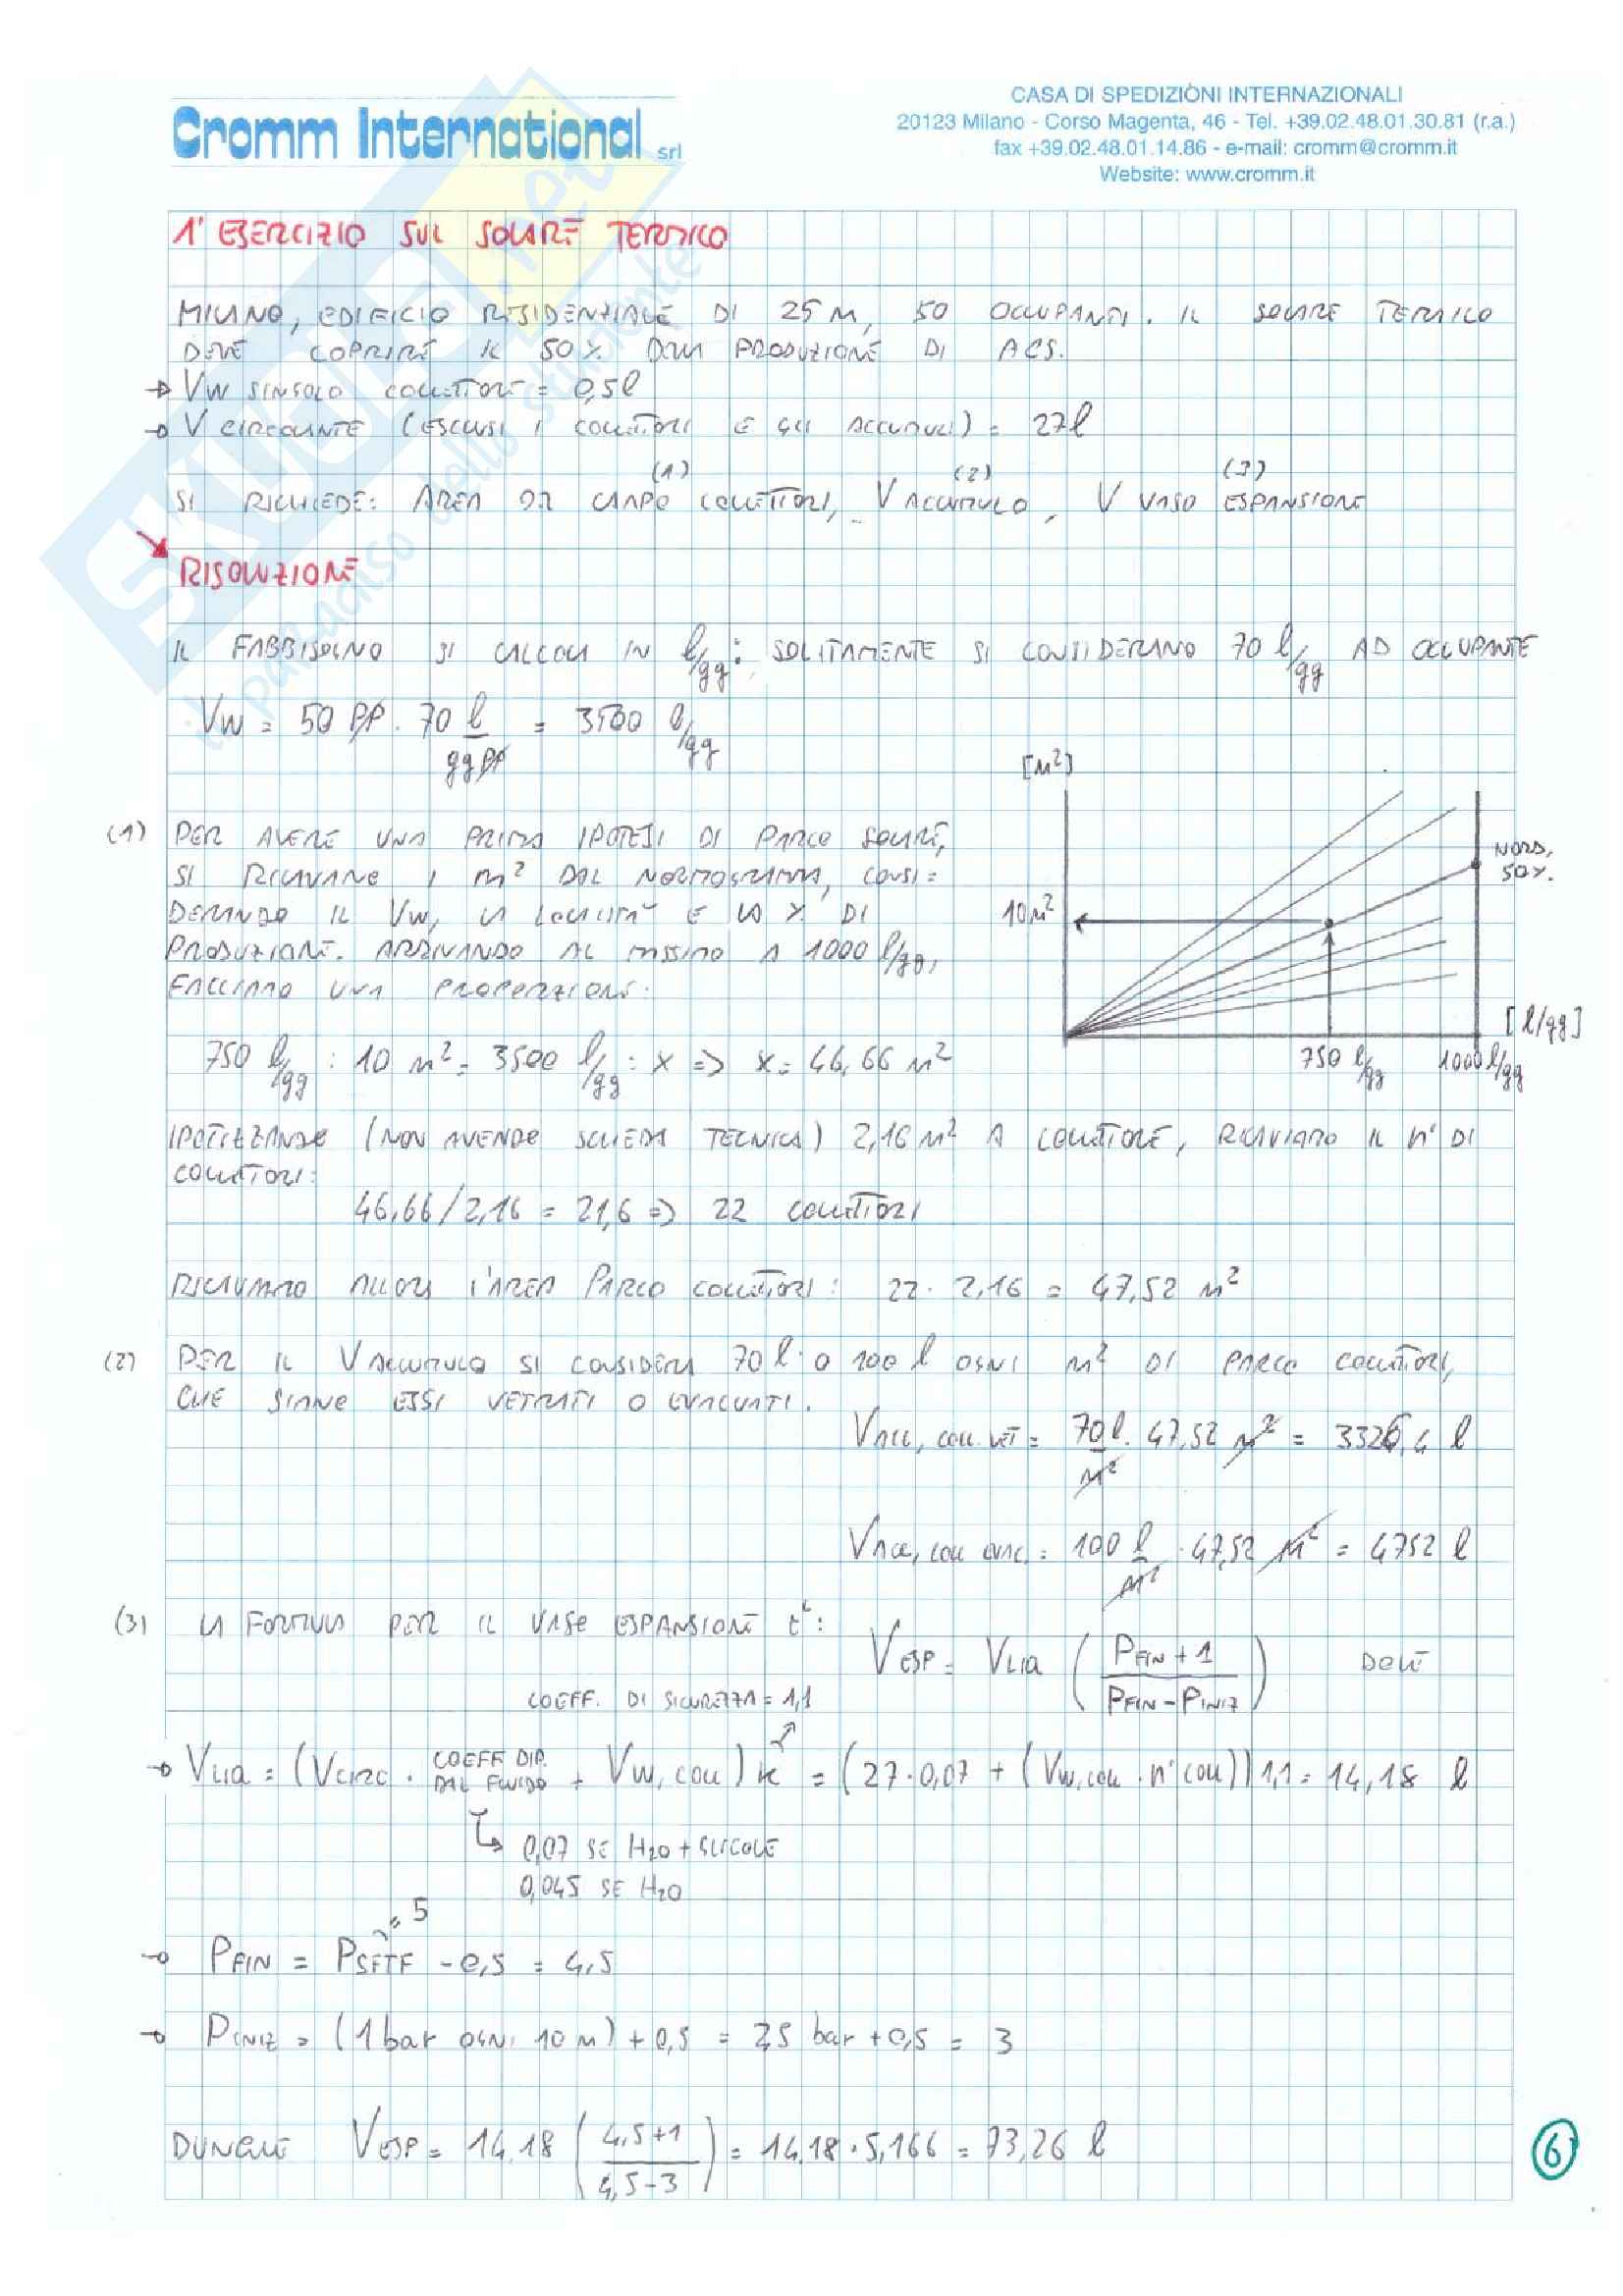 Cromm International srl
CASA DI SPEDIZIONI INTERNAZIONALI
20123 Milano - Corso Magenta, 46 - Tel. +39.02.48.01.30.81 (r.a.)
fax +39.02.48.01.14.86 - e-mail: cromm@cromm.it
Website: www.cromm.it
SKUOLA.net
il paradiso dello studente
1° ESERCIZIO SUL SOLARE TERMICO
MILANO, EDIFICIO RESIDENZIALE DI 25 M, 50 OCCUPANTI. IL SOLARE TERMICO
DEVE COPRIRE IL 50% DELLA PRODUZIONE DI ACS.
→ VW SINGOLO COLLETTORE = 0,5 l
→ V CIRCOLANTE (ESCLUSI I COLLETTORI E GLI ACCUMULI) = 27 l
(1) (2) (3)
SI RICHIEDE: AREA DEL CAMPO COLLETTORI, V ACCUMULO, V VASO ESPANSIONE
RISOLUZIONE
IL FABBISOGNO SI CALCOLA IN l/gg: SOLITAMENTE SI CONSIDERANO 70 l/gg AD OCCUPANTE
VW = 50 PP · 70 l/gg PP = 3500 l/gg
(1) PER AVERE UNA PRIMA IPOTESI DI PARCO SOLARE,
SI RICAVANO I m² DAL NORMOGRAMMA, CONSI=
DERANDO IL VW, LA LOCALITÀ E LA % DI
PRODUZIONE. ARRIVANDO AL MASSIMO A 1000 l/gg,
FACCIAMO UNA PROPORZIONE:
[M²]
NORD,
50%.
10 M²
[l/gg]
750 l/gg
1000 l/gg
750 l/gg : 10 M² = 3500 l/gg : X => X = 46,66 M²
IPOTIZZANDO (NON AVENDO SCHEDA TECNICA) 2,16 M² A COLLETTORE, RICAVIAMO IL N° DI
COLLETTORI:
46,66/2,16 = 21,6 => 22 COLLETTORI
RICAVIAMO ALLORA L'AREA PARCO COLLETTORI: 22 · 2,16 = 47,52 M²
(2) PER IL V ACCUMULO SI CONSIDERA 70 l O 100 l OGNI M² DI PARCO COLLETTORI,
CHE SIANO ESSI VETRATI O EVACUATI.
VACC, COLL. VET = 70 l/M² · 47,52 M² = 3326,4 l
VACC, COLL EVAC. = 100 l/M² · 47,52 M² = 4752 l
(3) LA FORMULA PER IL VASO ESPANSIONE È:
VESP = VUA (PFIN + 1 / PFIN - PINIZ) DOVE
COEFF. DI SICUREZZA = 1,1
→ VUA = (VCIRC · COEFF DIP. DAL FLUIDO + VW, COLL) K = (27 · 0,07 + (VW, COLL · N° COLL)) 1,1 = 14,18 l
↳ 0,07 SE H2O + GLICOLE
0,045 SE H2O
= 5
→ PFIN = PSETF - 0,5 = 4,5
→ PINIZ = (1 bar OGNI 10 M) + 0,5 = 2,5 bar + 0,5 = 3
DUNQUE VESP = 14,18 (4,5+1 / 4,5-3) = 14,18 · 5,166 = 73,26 l
6